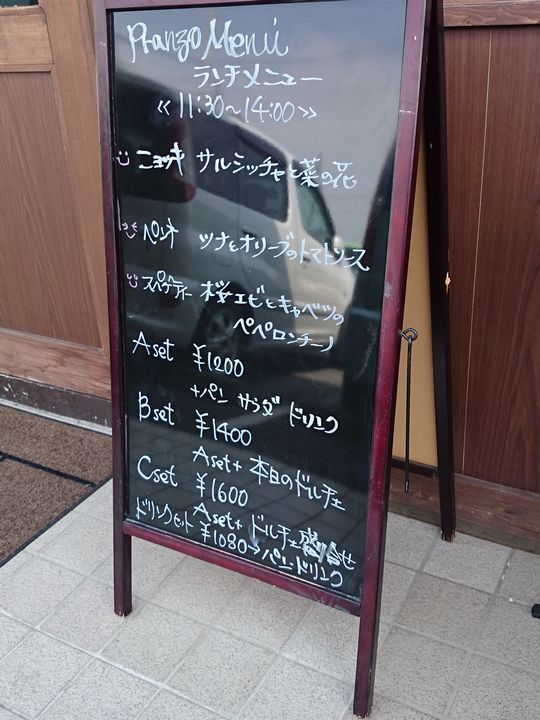 Pranzo Menú
ランチメニュー
≪11:30~14:00≫
ニョッキ サルシッチャと菜の花
ペンネ ツナとオリーブのトマトソース
スパゲティー 桜エビとキャベツの
ペペロンチーノ
A set ¥1200
+パン サラダ ドリンク
B set ¥1400
A set+本日のドルチェ
C set ¥1600
A set+ドルチェ盛合せ
ドリンクセット ¥1080→パン・ドリンク